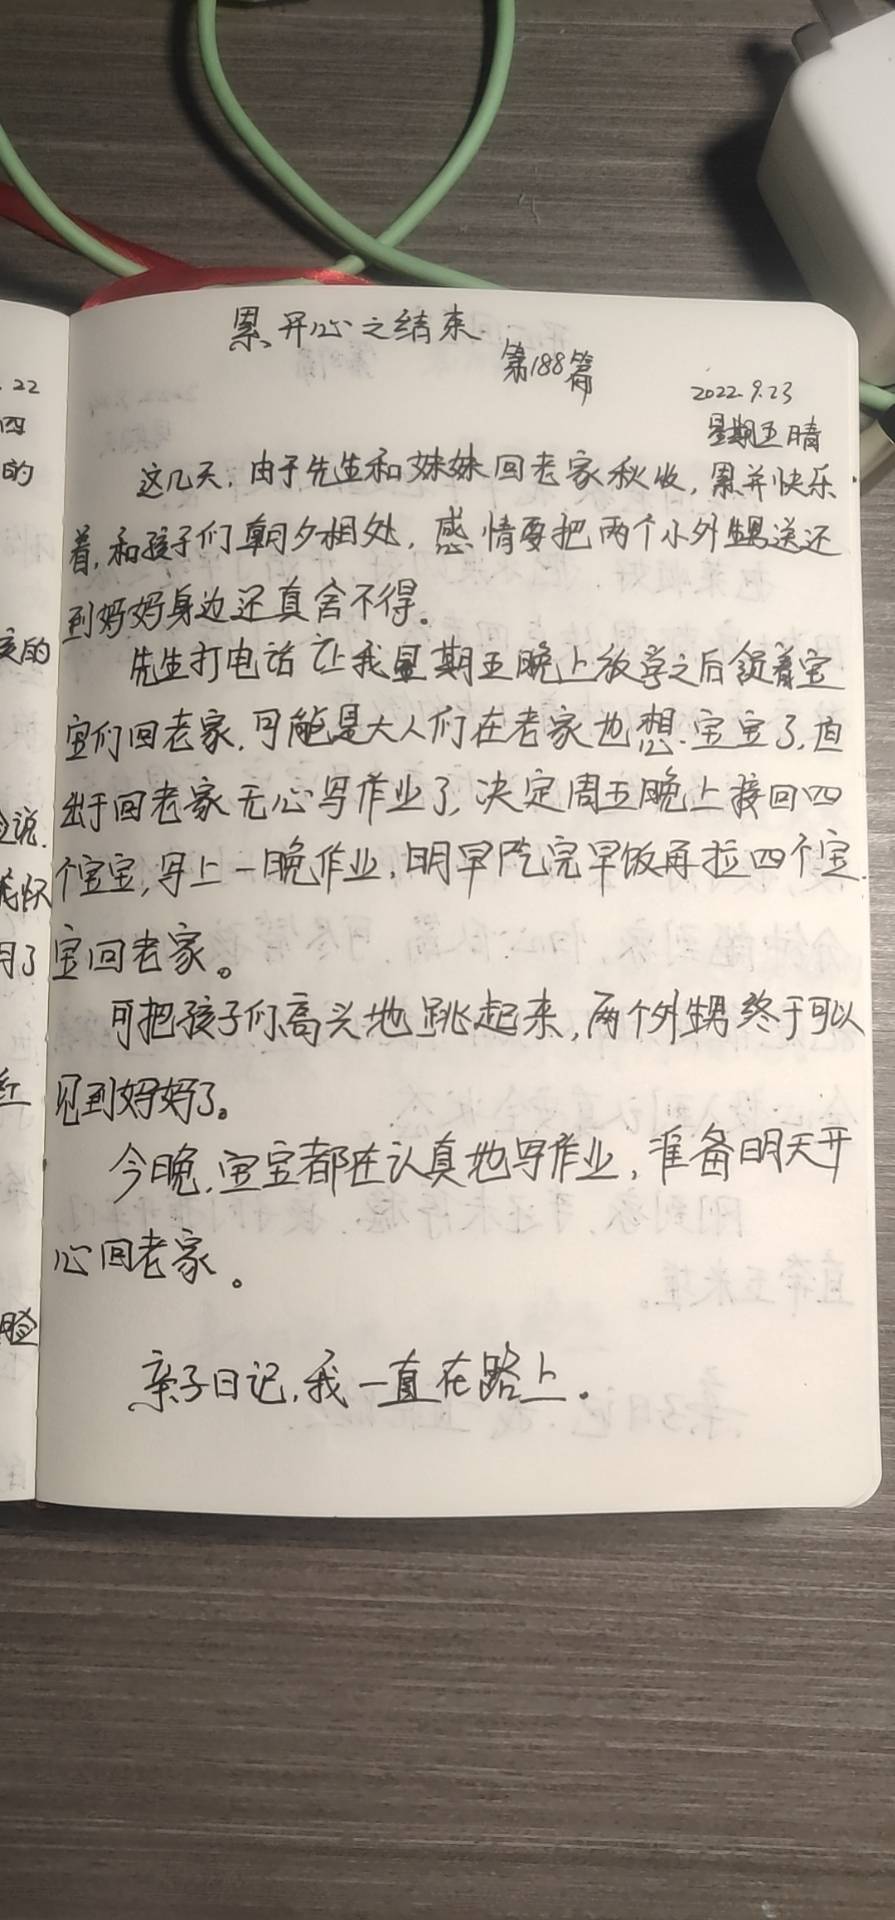 累开心之结束.
第188篇
2022.9.23
星期五晴
这几天,由于先生和妹妹回老家秋收,累并快乐
着,和孩子们朝夕相处,感情要把两个小外甥送还
到妈妈身边还真舍不得。
先生打电话让我星期五晚上放学之后领着宝
宝们回老家,可能是大人们在老家也想宝宝了,但
出于回老家无心写作业了,决定周五晚上接回四
个宝宝,写上一晚作业,明早吃完早饭再拉四个宝
宝回老家。
可把孩子们高兴地跳起来,两个外甥终于可以
见到妈妈了。
今晚,宝宝都在认真地写作业,准备明天开
心回老家。
亲子日记,我一直在路上。
.22
四
的
的
说.
用了
红
脸